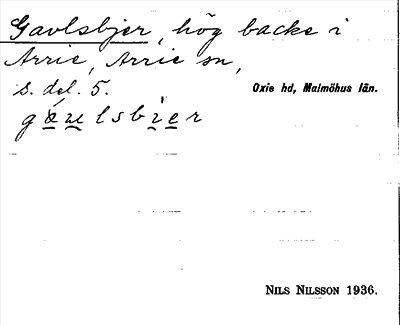 Gavlsbjer, hög backe i
Arrie, Arrie sn,
s. del. 5. Oxie hd, Malmöhus län.
gáu̲lsbi̲e̲r
NILS NILSSON 1936.